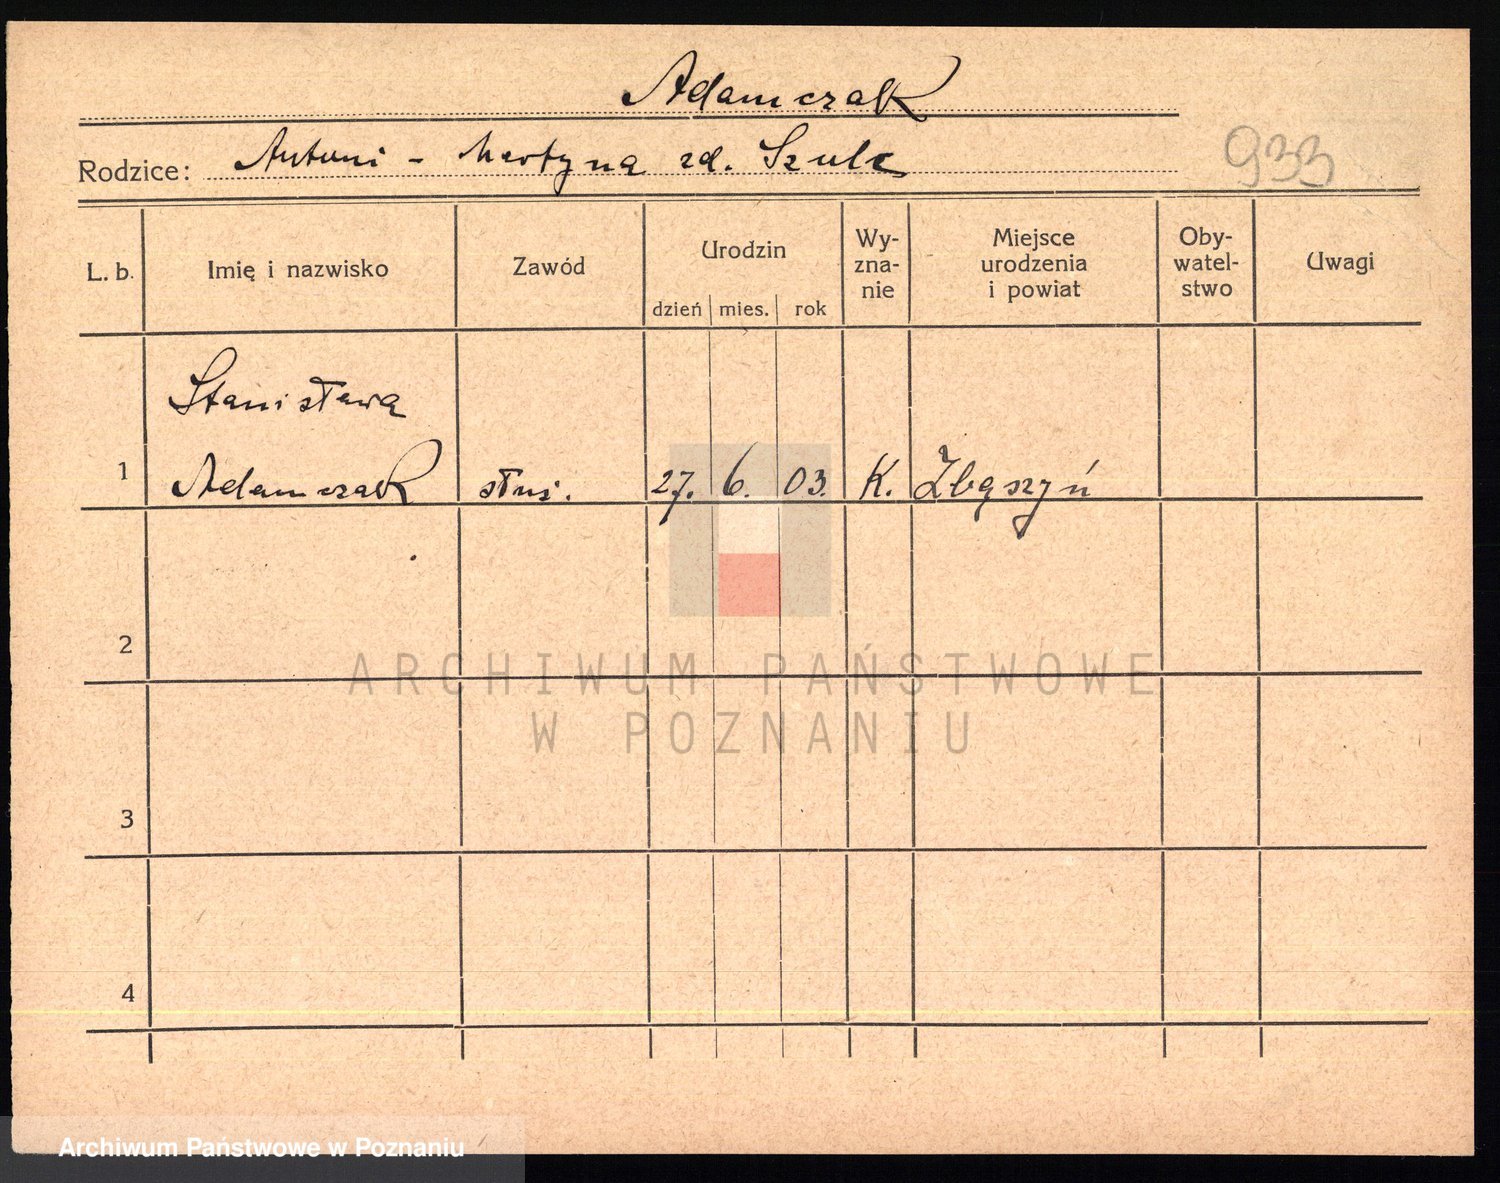 Adamczak
Rodzice: Antoni - Martyna zd. Szulc
933
L. b.
Imię i nazwisko
Zawód
Urodzin
dzień mies. rok
Wy-
zna-
nie
Miejsce
urodzenia
i powiat
Oby-
watel-
stwo
Uwagi
Stanisława
1 Adamczak służ. 27. 6. 03. K. Zbąszyń
2
3
4
ARCHIWUM PAŃSTWOWE
W POZNANIU
Archiwum Państwowe w Poznaniu